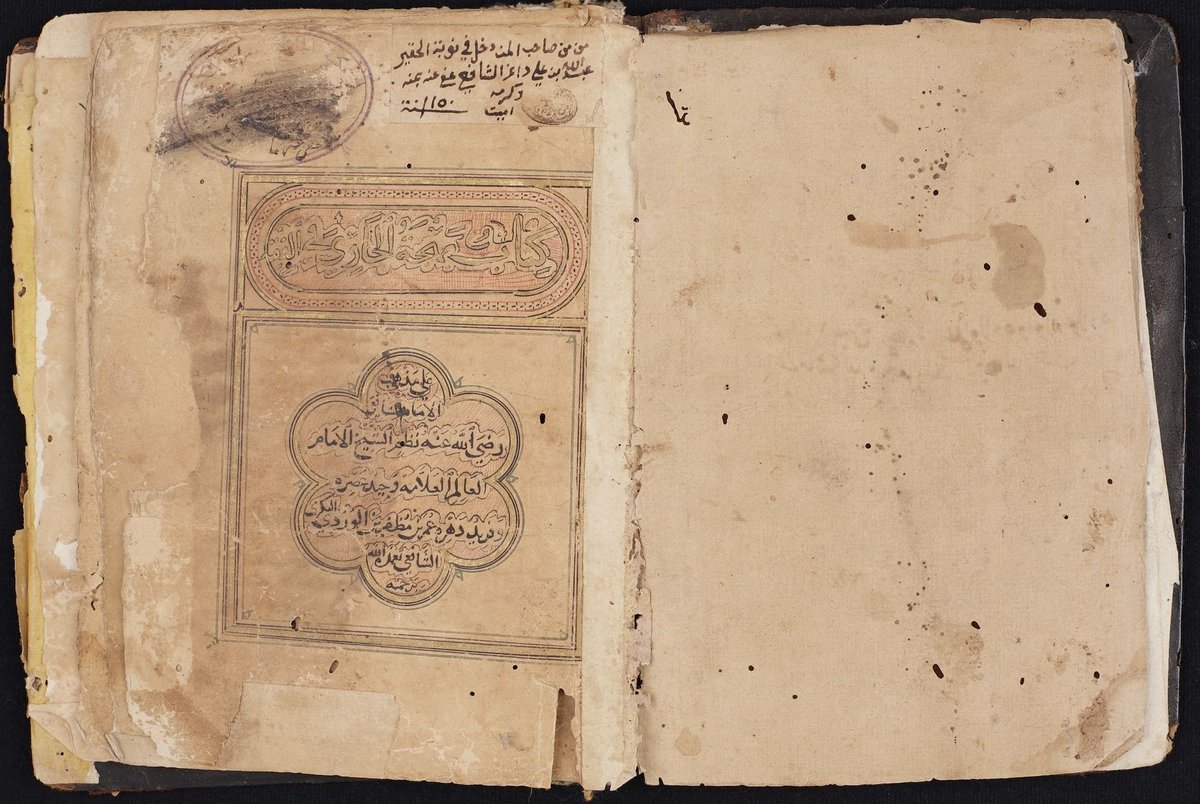 من من صاحب المنه دخل في نوبة الحقير
عبد الله بن علي الشافعي عفى عنه بمنه
وكرمه
امين
سنة ١١٥٠
كتاب بهجة الحاوي في الفقه
على مذهب
الامام الشافعي
رضي الله عنه نظم الشيخ الامام
العالم العلامه وحيد عصره
وفريد دهره عمر بن مظفر بن الوردي البكري
الشافعي تغمده الله
برحمته